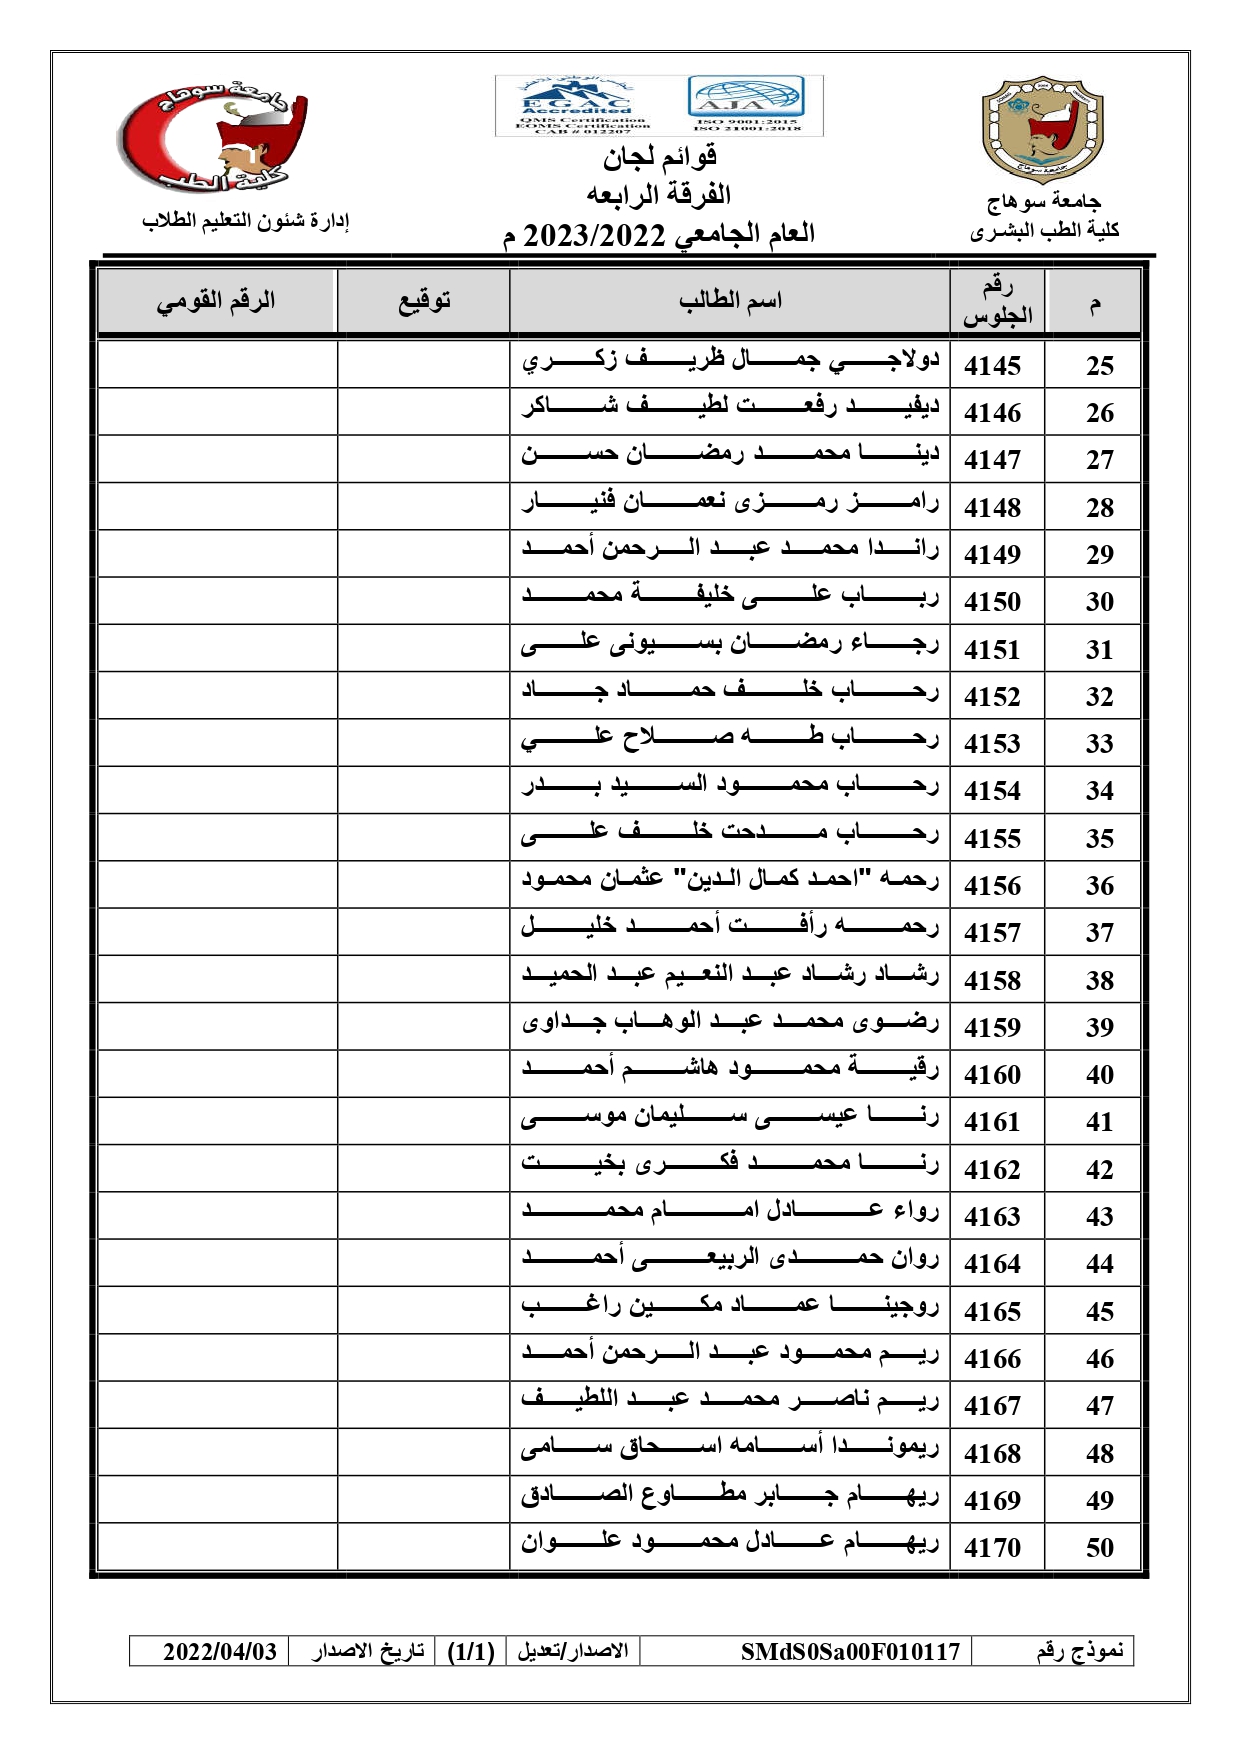 جامعة سوهاج
كلية الطب
المجلس الوطني للاعتماد
EGAC
Accredited
QMS Certification
EOMS Certification
CAB # 012207
AJA
ISO 9001:2015
ISO 21001:2018
جامعة سوهاج
قوائم لجان
الفرقة الرابعه
العام الجامعي 2023/2022 م
جامعة سوهاج
كلية الطب البشرى
إدارة شئون التعليم الطلاب
م رقم الجلوس اسم الطالب توقيع الرقم القومي
25 4145 دولاجي جمال ظريف زكري
26 4146 ديفيد رفعت لطيف شاكر
27 4147 دينا محمد رمضان حسن
28 4148 رامز رمزى نعمان فنيار
29 4149 راندا محمد عبد الرحمن أحمد
30 4150 رباب على خليفة محمد
31 4151 رجاء رمضان بسيونى على
32 4152 رحاب خلف حماد جاد
33 4153 رحاب طه صلاح علي
34 4154 رحاب محمود السيد بدر
35 4155 رحاب مدحت خلف على
36 4156 رحمه "احمد كمال الدين" عثمان محمود
37 4157 رحمه رأفت أحمد خليل
38 4158 رشاد رشاد عبد النعيم عبد الحميد
39 4159 رضوى محمد عبد الوهاب جداوى
40 4160 رقية محمود هاشم أحمد
41 4161 رنا عيسى سليمان موسى
42 4162 رنا محمد فكرى بخيت
43 4163 رواء عادل امام محمد
44 4164 روان حمدى الربيعى أحمد
45 4165 روجينا عماد مكين راغب
46 4166 ريم محمود عبد الرحمن أحمد
47 4167 ريم ناصر محمد عبد اللطيف
48 4168 ريموندا أسامه اسحاق سامى
49 4169 ريهام جابر مطاوع الصادق
50 4170 ريهام عادل محمود علوان
نموذج رقم SMdS0Sa00F010117 الاصدار/تعديل (1/1) تاريخ الاصدار 2022/04/03